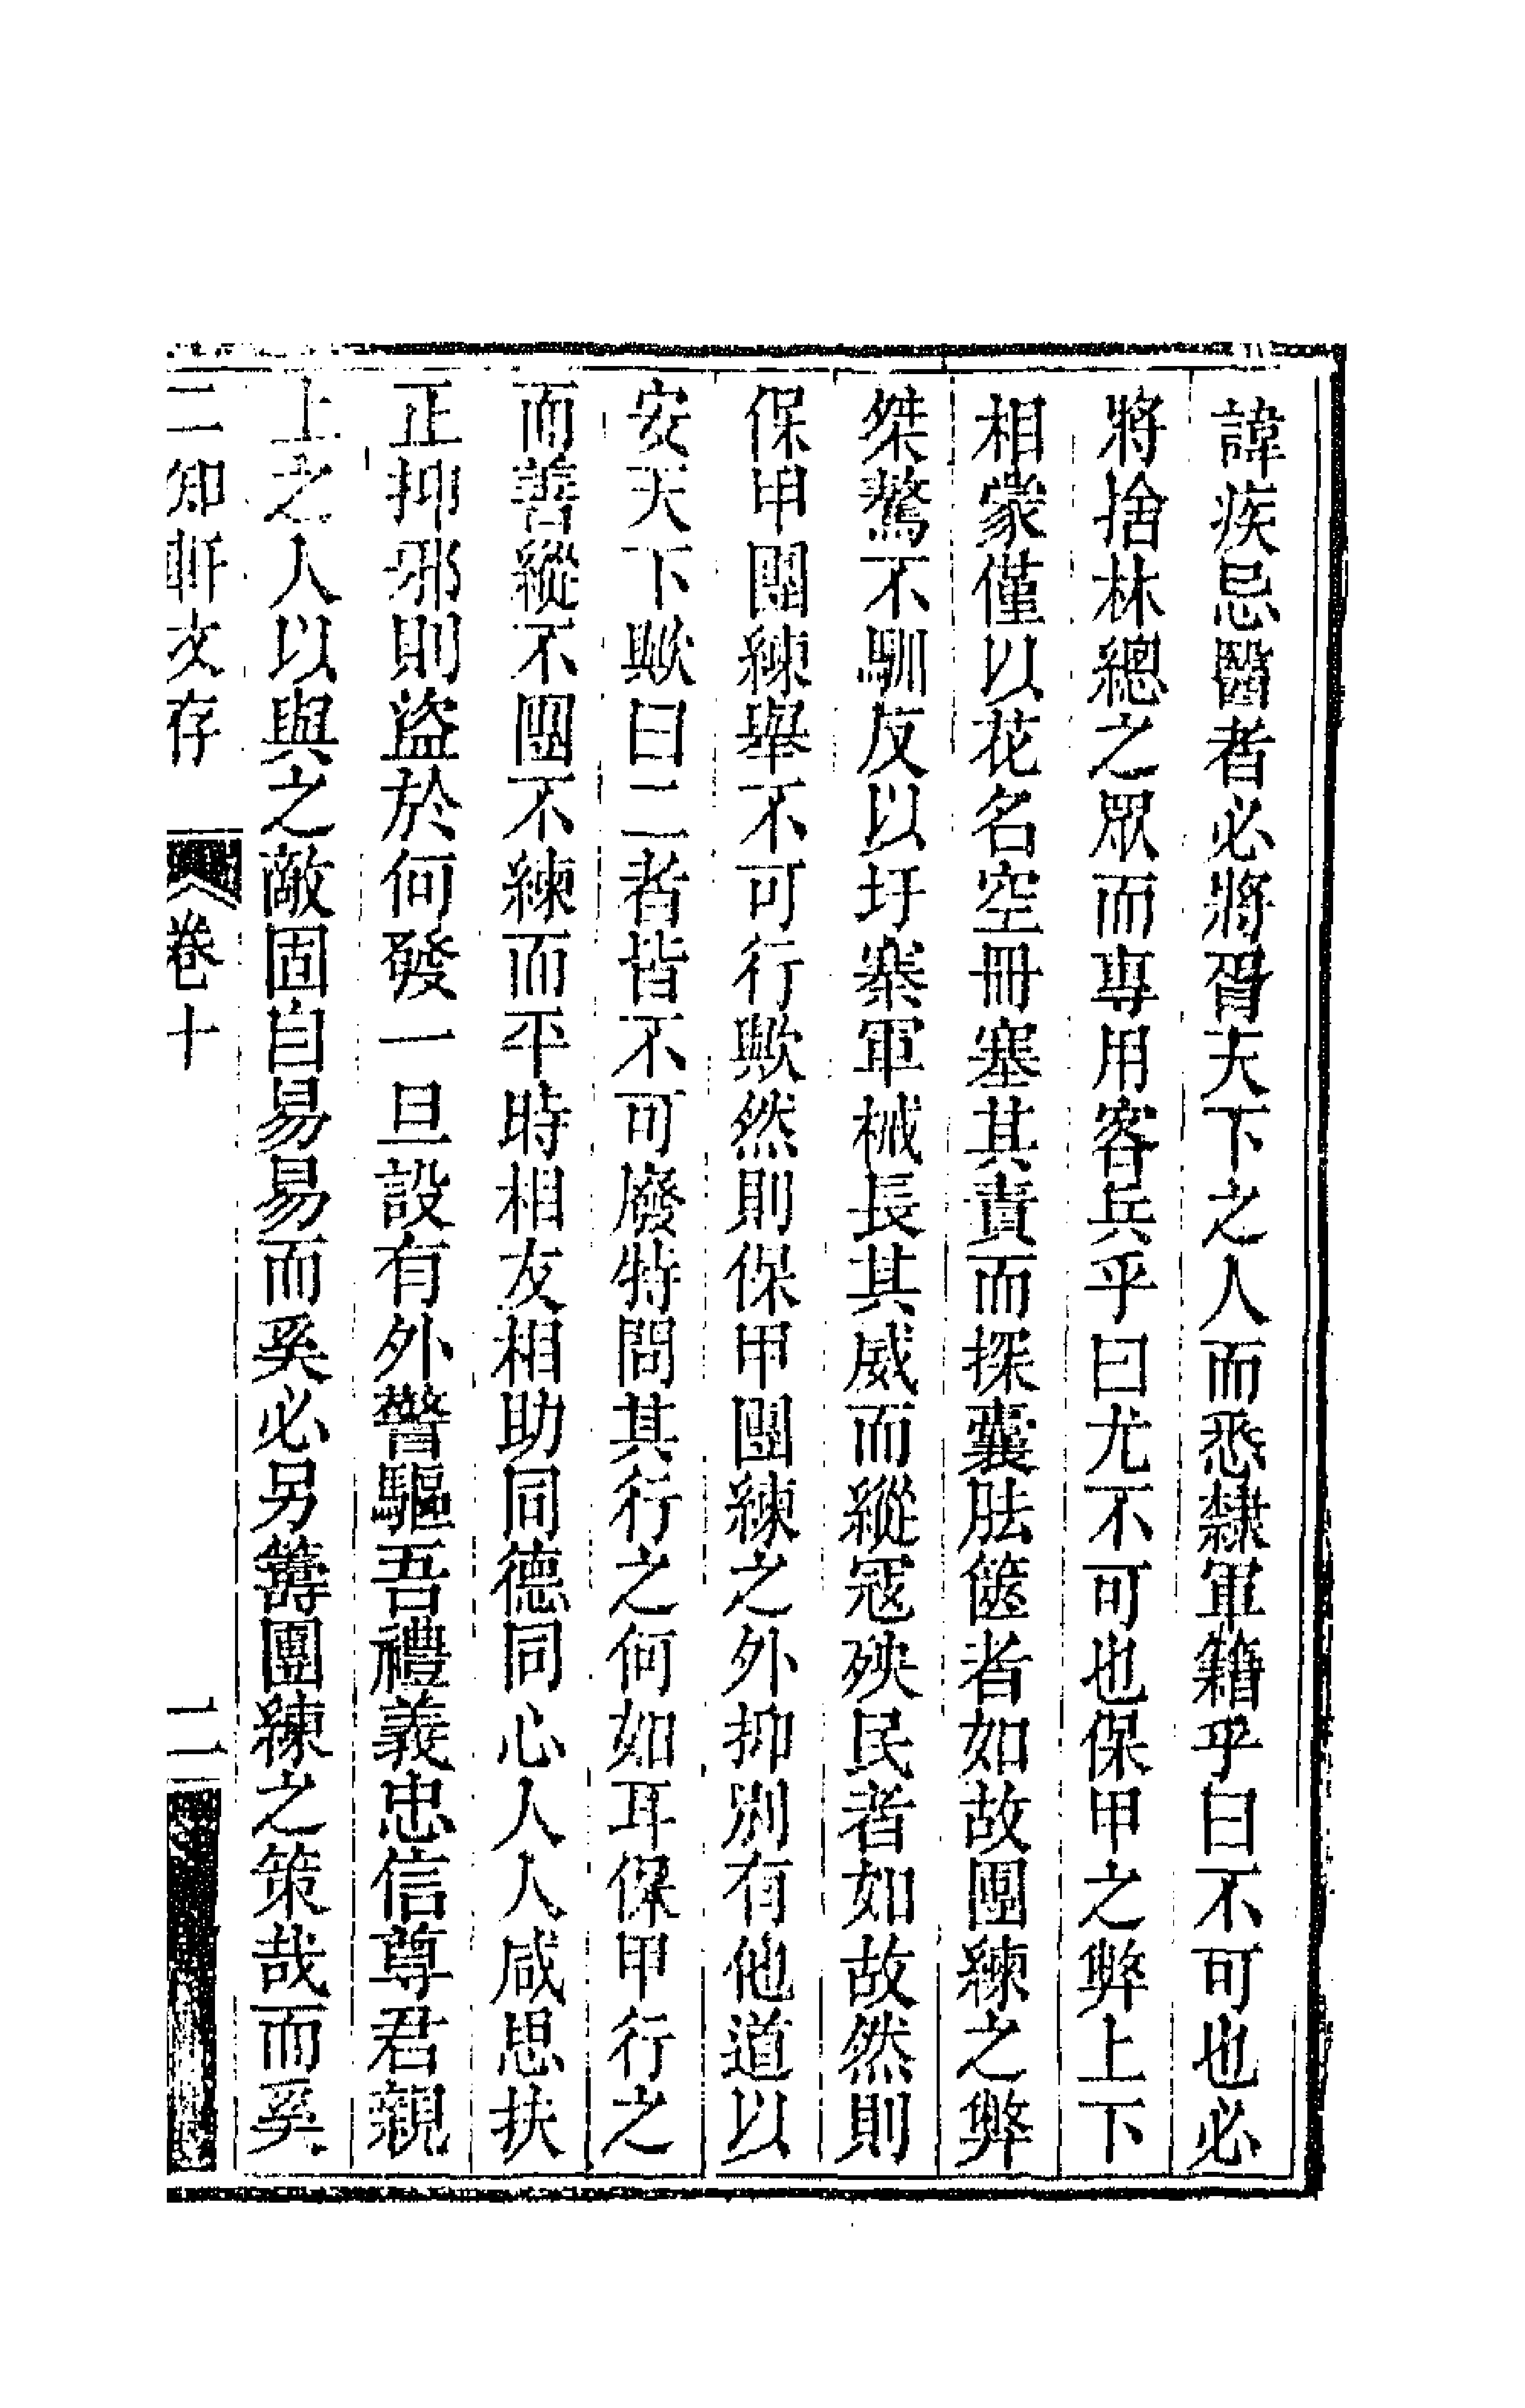 諱疾忌醫者必將胥天下之人而悉隸軍籍乎曰不可也必
將捨林總之眾而專用客兵乎曰尤不可也保甲之弊上下
相蒙僅以花名空冊塞其責而探囊胠篋者如故團練之弊
桀驁不馴反以圩寨軍械長其威而縱寇殃民者如故然則
保甲團練舉不可行歟然則保甲團練之外抑別有他道以
安天下歟曰二者皆不可廢特問其行之何如耳保甲行之
而善縱不團不練而平時相友相助同德同心人人咸思扶
正抑邪則盜於何發一旦設有外警驅吾禮義忠信尊君親
上之人以與之敵固自易易而奚必另籌團練之策哉而奚
二知軒文存
卷十
二